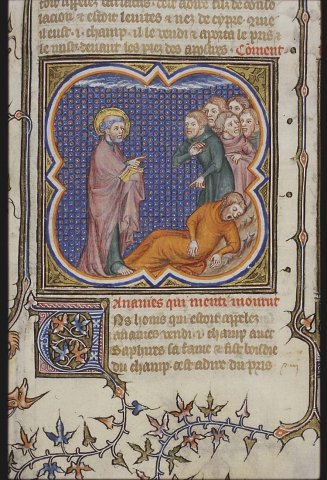 lacion & estoit leuites & nez de cypre, que
il eust .i. champ, il le vendi & aporta le pris &
le mist deuant les piez des apostres. Coment
Ananies qui menti mourut
Uns homs qui estoit apelez
ananies vendi .i. champ auec
Saphires sa fame & fist
du champ. cest adire du pris